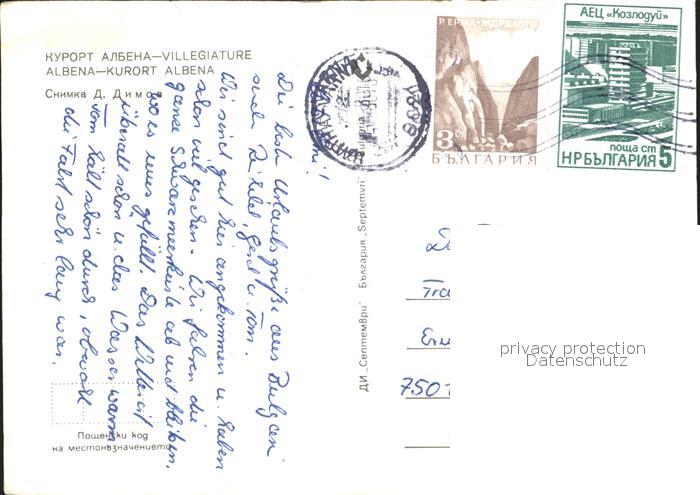 КУРОРТ АЛБЕНА—VILLEGIATURE
ALBENA—KURORT ALBENA
Снимка Д. Димов
Die besten Urlaubsgrüße aus Bulgarien
Gerd u. Tom.
Wir sind gut hier angekommen u. haben
schon viel gesehen. Wir fahren die
ganze Schwarzmeerküste ab und bleiben,
wo es uns gefällt. Das Wetter ist
überall schön u. das Wasser warm
Tom hält schön durch, obwohl
die Fahrt sehr lang war.
Пощенски код
на местоназначението
ДИ „Септември" България „Septemvri"
ВАРНА VARNA
РЕРМА-ЖДРЕЛОТО
3 СТ
БЪЛГАРИЯ
АЕЦ «Козлодуй»
поща ст
НРБЪЛГАРИЯ 5
750
privacy protection
Datenschutz